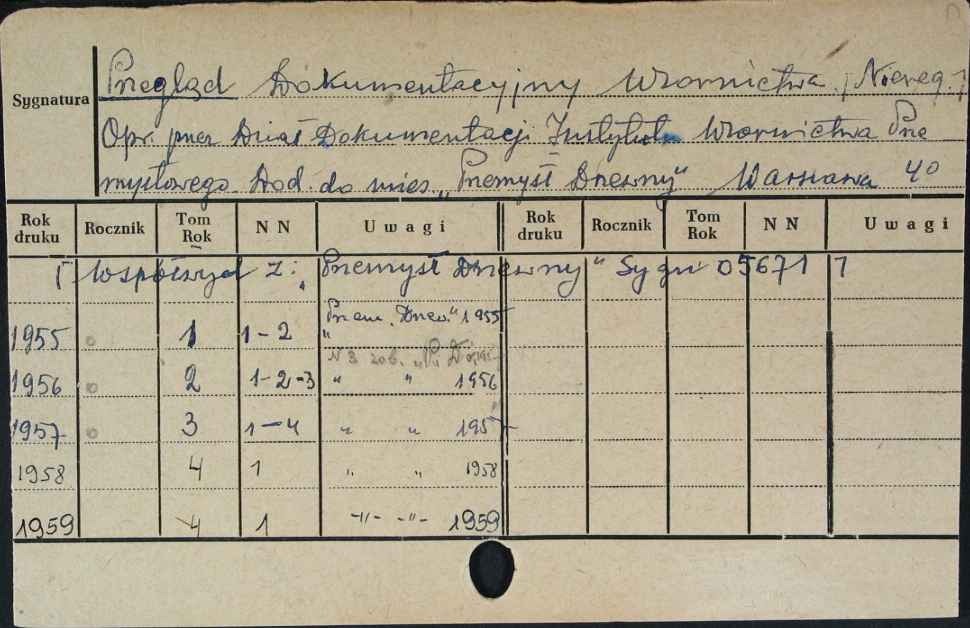 Sygnatura
Przegląd Dokumentacyjny Wzornictwa. /Niereg./
Opr. przez Dział Dokumentacji Instytutu Wzornictwa Prze
mysłowego. Dod. do mies. „Przemysł Drzewny" Warszawa 40
Rok druku Rocznik Tom Rok N N Uwagi Rok druku Rocznik Tom Rok N N Uwagi
[ Współwyd z: „Przemysł Drzewny" Sygn 05671 ]
1955 1 1-2 „Przem. Drzew." 1955
N 3 zob. „P. Drzew.
1956 2 1-2-3 " " 1956
1957 3 1-4 " " 1957
1958 4 1 " " 1958
1959 4 1 -"- -"- 1959